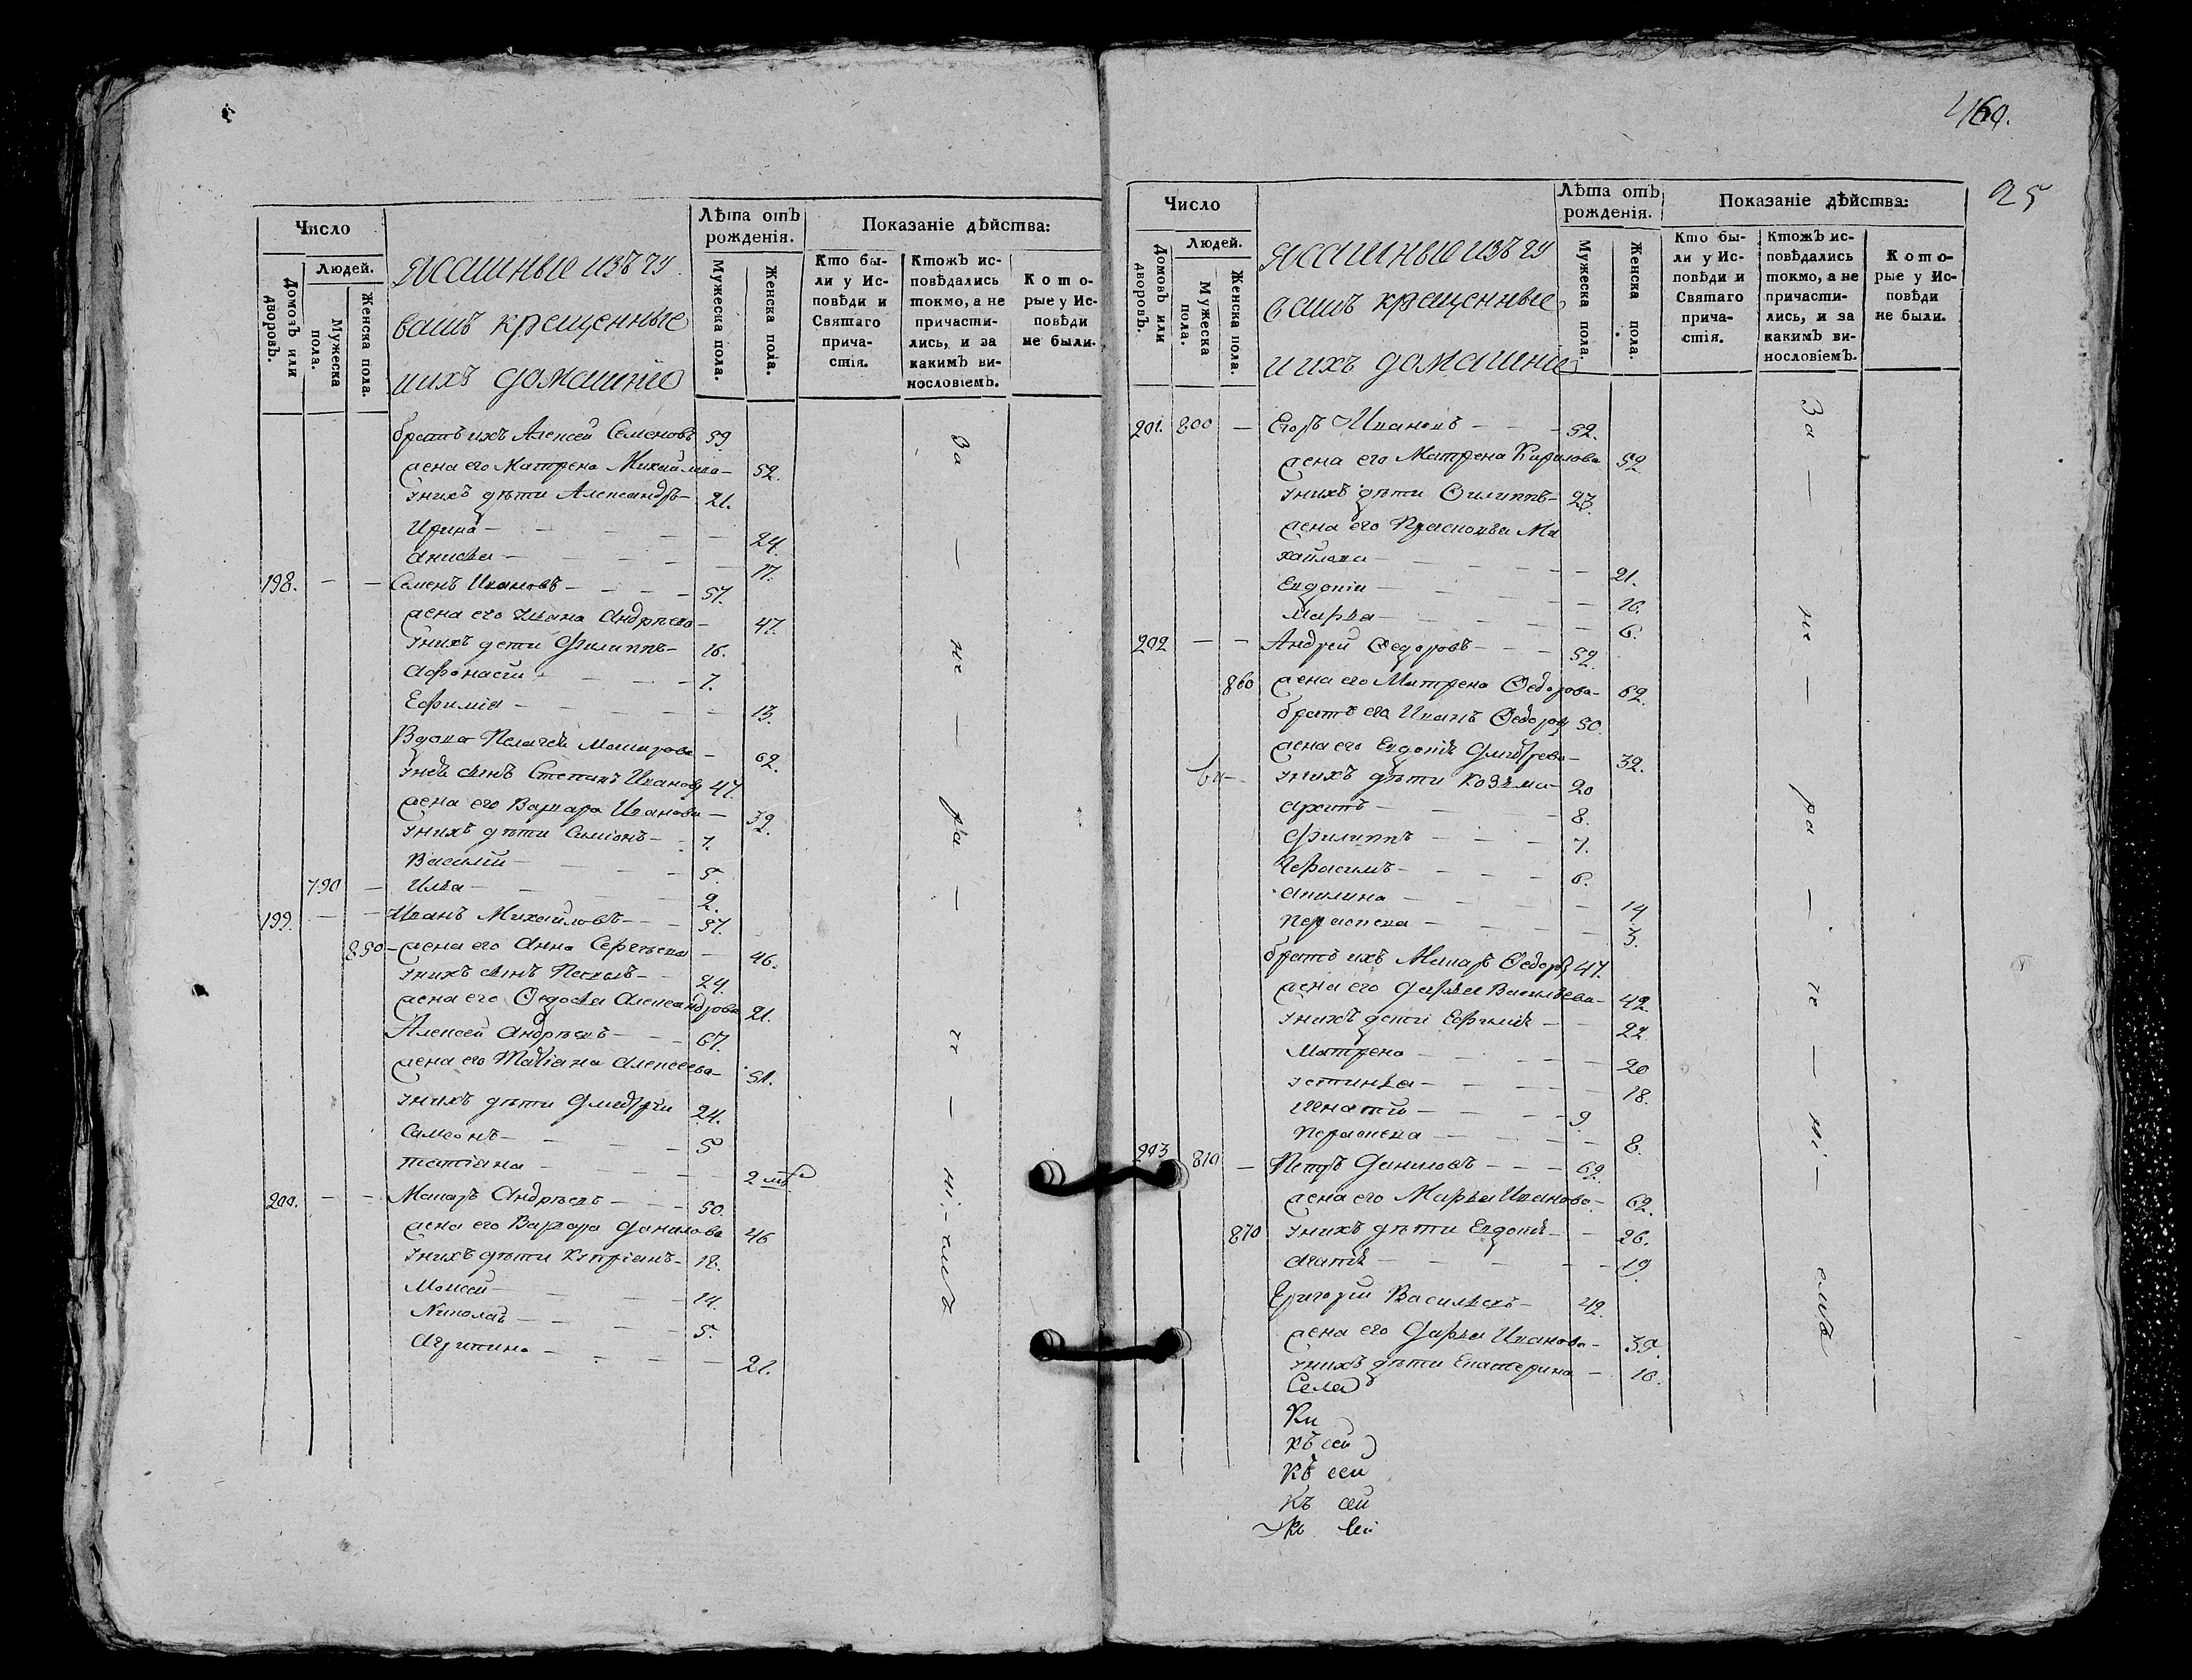 Число
Лѣта отъ рожденія.
Показаніе дѣйства:
Домовъ или дворовъ.
Людей.
Мужеска пола.
Женска пола.
Ясашные изъ чу
вашъ крещенные
и ихъ домашніе
Мужеска пола.
Женска пола.
Кто бы-
ли у Ис-
повѣди и
Святаго
прича-
стія.
Ктожъ ис-
повѣдались
токмо, а не
причасти-
лись, и за
какимъ ви-
нословіемъ.
Кото-
рые у Ис-
повѣди
не были.
братъ ихъ Алексей Семеновъ 59.
жена его Матрена Михайлова 52.
у нихъ дѣти Александръ 21.
Ирина 24.
Анисья 17.
198. Семенъ Ивановъ 57.
жена его Андрѣева 47.
у нихъ дети Филиппъ 16.
Афонасей 7.
Ефимія 13.
Вдова Пелагея 62.
у неѣ сынъ Степанъ Ивановъ 47.
жена его Варвара Иванова 32.
у нихъ дѣти Симіонъ 7.
Василій 5.
790 Илья 2.
199. Иванъ Михайловъ 57.
850 жена его Анна Сергѣева 46.
у нихъ сынъ 24.
жена его Ѳедосья Александрова 21.
Алексей Андрѣевъ 67.
жена его Татіана Алексеева 51.
у нихъ дѣти Дмитрей 24.
Самсонъ 5
Татіана 2
200. Макаръ Андрѣевъ 50.
жена его Варвара Данилова 46
у нихъ дѣти Кипріанъ 18.
Моисей 14.
Николай 5.
Агрипина 21.
За — не — ра — че — ні — емъ
460.
25
Число
Лѣта отъ рожденія.
Показаніе дѣйства:
Домовъ или дворовъ.
Людей.
Мужеска пола.
Женска пола.
Ясашные изъ чу
вашъ крещенные
и ихъ домашніе
Мужеска пола.
Женска пола.
Кто бы-
ли у Ис-
повѣди и
Святаго
прича-
стія.
Ктожъ ис-
повѣдались
токмо, а не
причасти-
лись, и за
какимъ ви-
нословіемъ.
Кото-
рые у Ис-
повѣди
не были.
201. 800 Егоръ Ивановъ 52.
жена его Матрена Кирилова 52
у нихъ дѣти Филиппъ 23.
жена его Прасковья Ми
хайлова 21.
Евдокія 16.
Марья 6.
202 Андрей Ѳедоровъ 52.
860 жена его Матрена Ѳедорова 62.
братъ его Иванъ Ѳедоровъ 50.
жена его Евдокія Дмитрева 32.
у нихъ дѣти Козьма 20
Архипъ 8.
Филиппъ 7.
Герасимъ 6.
Акилина 14
Параскева 3.
братъ ихъ Макаръ Ѳедоровъ 47.
жена его Дарья Васильева 42.
у нихъ дети Ефимія 22
Матрена 20
Устинья 18.
Игнатій 9.
Параскева 8.
203 810 Петръ Даниловъ 62.
жена его Марья Иванова 62.
870 у нихъ дѣти Евдокія 26.
Агапія 19.
Григорій Васильевъ 42.
жена его Дарья Иванова 35.
у нихъ дѣти Екатерина 10.
Села
Ки
къ сей
Къ сей
Къ сей
За — не — ра — че — ні — емъ